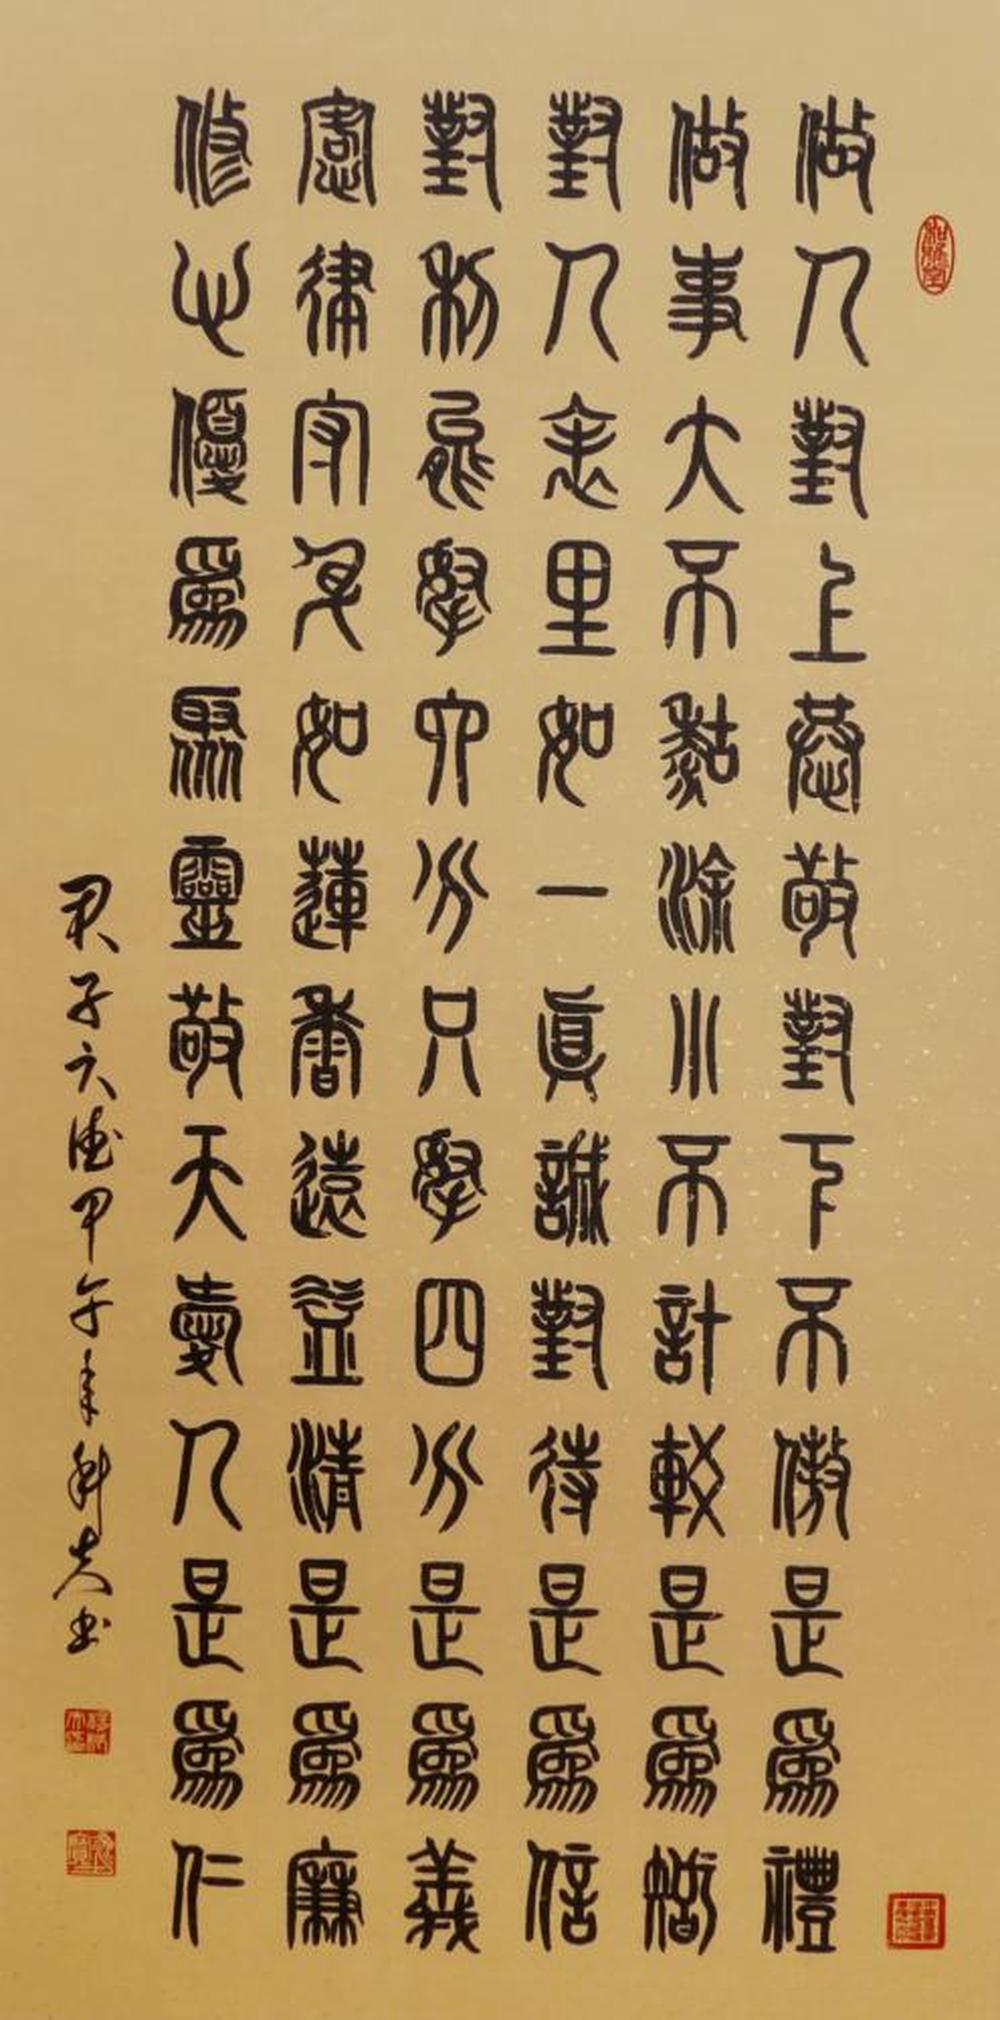 做人對上恭敬對下不傲是爲禮
做事大不糊塗小不計較是爲智
對人表里如一真誠對待是爲信
對利能拏六分只拏四分是爲義
憲律守身如蓮香遠益清是爲廉
修心優爲聚靈敬天愛人是爲仁
君子六德甲午年科夫书